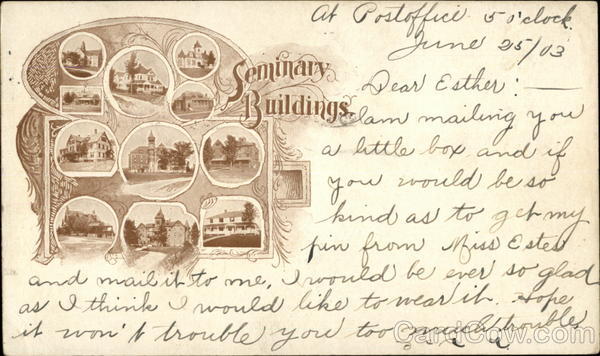 At Postoffice 5 o'clock.
June 25/03
Seminary
Buildings.
Dear Esther: —
I am mailing you
a little box and if
you would be so
kind as to get my
pin from Miss Estes
and mail it to me, I would be ever so glad
as I think I would like to wear it. Hope
it won't trouble you too much trouble,
CardCow.com